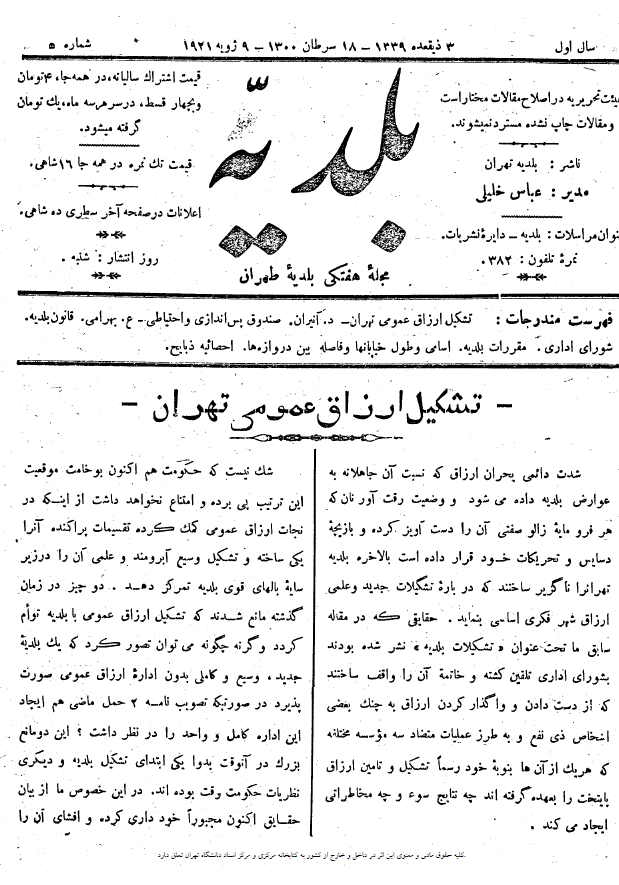 سال اول
۳ ذیقعده ۱۳۳۹ – ۱۸ سرطان ۱۳۰۰ – ۹ ژویه ۱۹۲۱
شماره ۵
هیئت تحریریه در اصلاح مقالات مختار است
و مقالات چاپ نشده مسترد نمیشوند.
ناشر : بلدیه تهران
مدیر : عباس خلیلی
عنوان مراسلات : بلدیه – دایرهٔ نشریات.
نمرهٔ تلفون : ۳۸۲.
بلدیّه
مجلهٔ هفتگی بلدیهٔ طهران
قیمت اشتراك سالیانه، در همه جا، ۴ تومان
وبچهار قسط، در سر هر سه ماه، یك تومان
گرفته میشود.
قیمت تك نمره در همه جا ۱۶ شاهی.
اعلانات در صفحه آخر سطری ده شاهی.
روز انتشار : شنبه .
فهرست مندرجات : تشکیل ارزاق عمومی تهران – د. آنیران. صندوق پس اندازی و احتیاطی – ع. بهرامی . قانون بلدیه.
شورای اداری . مقررات بلدیه. اسامی وطول خیابانها وفاصله بین دروازه ها. احصائیه ذبایح.
– تشکیل ارزاق عمومی تهران –
شدت دائمی بحران ارزاق که نسبت آن جاهلانه به
عوارض بلدیه داده می شود و وضعیت رقت آور نان که
هر فرو مایهٔ زالو صفتی آن را دست آویز کرده و بازیچهٔ
دسایس و تحریکات خود قرار داده است بالاخره بلدیه
تهرانرا ناگزیر ساختند که در بارهٔ تشکیلات جدید وعلمی
ارزاق شهر فکری اساسی بنماید . حقایقی که در مقاله
سابق ما تحت عنوان « تشکیلات بلدیه » نشر شده بودند
بشورای اداری تلقین گشته و خاتمهٔ آن را واقف ساختند
که از دست دادن و واگذار کردن ارزاق به چنك بعضی
اشخاص ذی نفع و به طرز عملیات متضاد سه مؤسسه مختلفه
که هریك از آن ها بنوبهٔ خود رسماً تشکیل و تامین ارزاق
پایتخت را بعهده گرفته اند چه نتایج سوء و چه مخاطراتی
ایجاد می کند .
شك نیست که حکومت هم اکنون بوخامت موقعیت
این ترتیب پی برده و امتناع نخواهد داشت از اینکه در
نجات ارزاق عمومی کمك کرده تقسیمات پراکنده آنرا
یکی ساخته و تشکیل وسیع آبرومند و علمی آن را درزیر
سایهٔ بالهای قوی بلدیه تمرکز دهد . دو چیز در زمان
گذشته مانع شدند که تشکیل ارزاق عمومی با بلدیه توأم
گردد و گرنه چگونه می توان تصور کرد که یك بلدیهٔ
جدید، وسیع و کاملی بدون ادارهٔ ارزاق عمومی صورت
پذیرد در صورتیکه تصویب نامه ۲ حمل ماضی هم ایجاد
این اداره کامل و واحد را در نظر داشت ؟ این دومانع
بزرك در آنوقت بدوا یکی ابتدای تشکیل بلدیه و دیگری
نظریات حکومت وقت بوده اند. در این خصوص ما از بیان
حقایق اکنون مجبوراً خود داری کرده و افشای آن را
کلیه حقوق مادی و معنوی این اثر در داخل و خارج از کشور به کتابخانه مرکزی و مرکز اسناد دانشگاه تهران تعلق دارد.